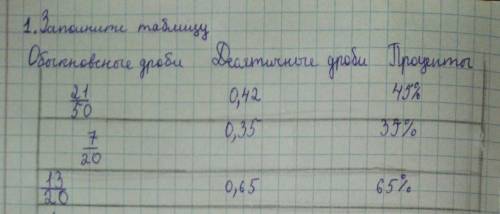 1. Заполните таблицу
Обыкновенные дроби Десятичные дроби Проценты
21/50 0,42 45%
7/20 0,35 35%
13/20 0,65 65%